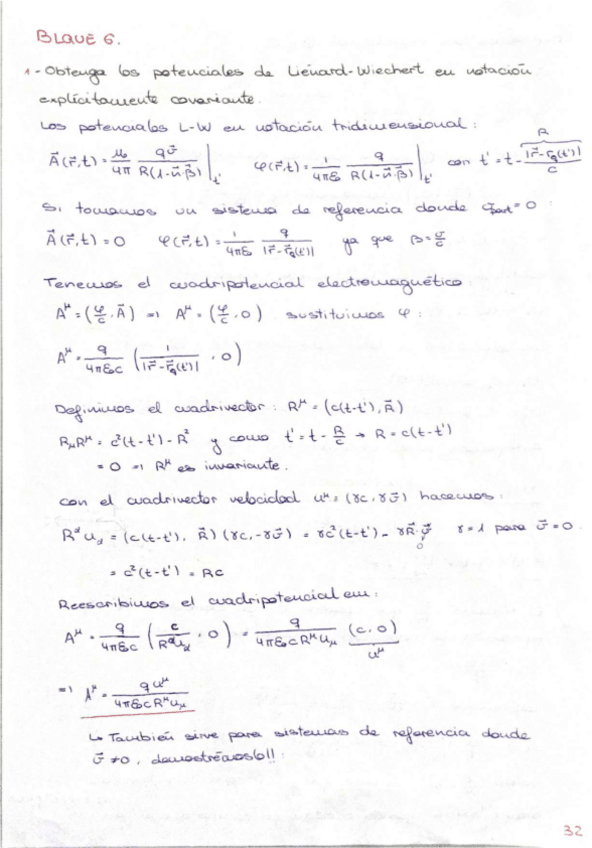 BLOQUE 6.
1 - Obtenga los potenciales de Liénard-Wiechert en notación
explícitamente covariante.
Los potenciales L-W en notación tridimensional:
A⃗(r⃗,t) = μ₀/4π qv⃗/R(1-n⃗·β⃗)|t' φ(r⃗,t) = 1/4πε₀ q/R(1-n⃗·β⃗)|t' con t' = t - |r⃗-r⃗q(t')|/c R
Si tomamos un sistema de referencia donde = 0:
A⃗(r⃗,t) = 0 φ(r⃗,t) = 1/4πε₀ q/|r⃗-r⃗q(t')| ya que β = v⃗/c
Tenemos el cuadripotencial electromagnético:
A^μ = (φ/c, A⃗) ⇒ A^μ = (φ/c, 0) sustituimos φ:
A^μ = q/4πε₀c (1/|r⃗-r⃗q(t')|, 0)
Definimos el cuadrivector: R^μ = (c(t-t'), R⃗)
RμR^μ = c²(t-t')-R² y como t' = t - R/c → R = c(t-t')
= 0 ⇒ R^μ es invariante.
con el cuadrivector velocidad u^μ = (γc, γv⃗) hacemos:
R^α uα = (c(t-t'), R⃗)(γc, -γv⃗) = γc²(t-t') - γR⃗·v⃗ γ = 1 para v⃗ = 0.
0
= c²(t-t') = Rc
Reescribimos el cuadripotencial em:
A^μ = q/4πε₀c (c/R^αuα, 0) = q/4πε₀cR^μuμ (c, 0)
u^μ
⇒ A^μ = qu^μ/4πε₀cR^μuμ
↳ También sirve para sistemas de referencia donde
v⃗ ≠ 0, demostrémoslo!!:
32